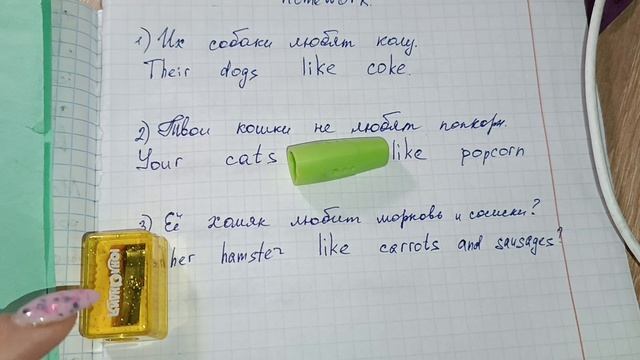 Homework.
1) Их собаки любят колу.
Their dogs like coke.
2) Твои кошки не любят попкорн.
Your cats like popcorn
3) Её хомяк любит морковь и сосиски?
her hamster like carrots and sausages?